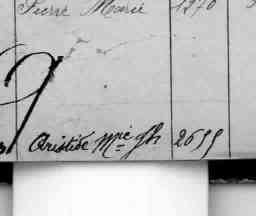 Pierre Marie 1270
Aristide Mie Gh 2655